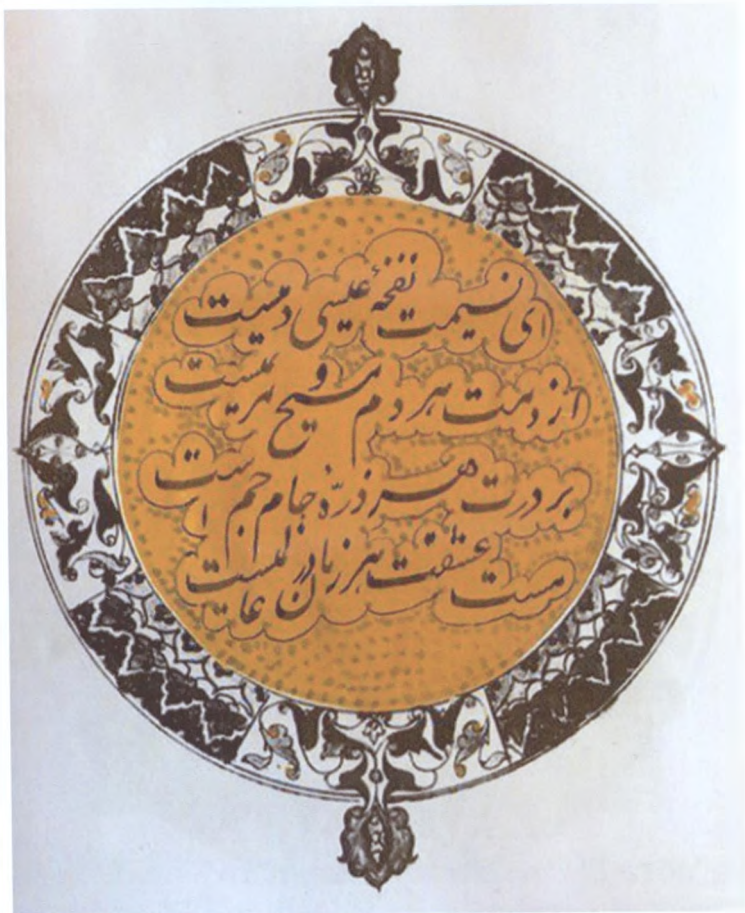 ای نسیمت نفخهٔ عیسی دمیست
از دمت هر دم مسیح و مریمیست
بر درت هر ذرّه جام جم است
مست عشقت هر زمان در عالمیست